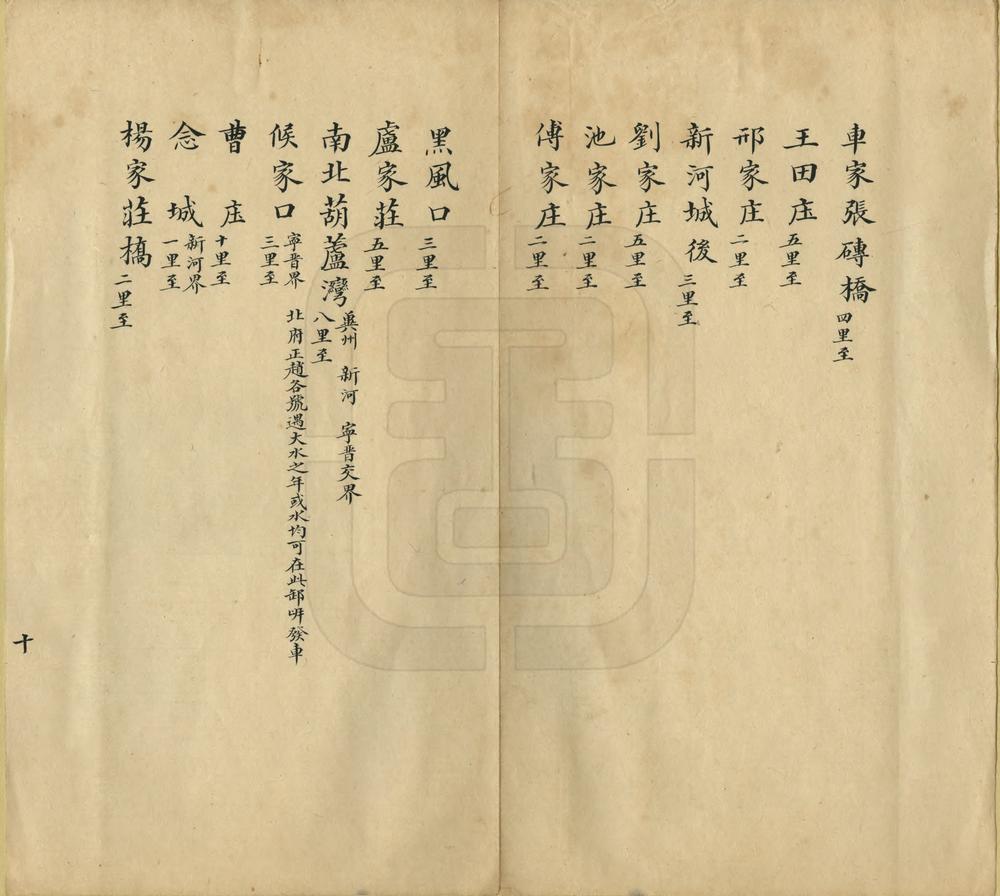 車家張磚橋 四里至
王田庄 五里至
邢家庄 二里至
新河城後 三里至
劉家庄 五里至
池家庄 二里至
傅家庄 二里至
黑風口 三里至
盧家莊 五里至
南北葫蘆灣 兾州 新河 寧晋交界
八里至
北府正趙各號遇大水之年或水均可在此卸 發車
候家口 寧晋界
三里至
曹庄 十里至
念城 新河界
一里至
楊家莊橋 二里至
十